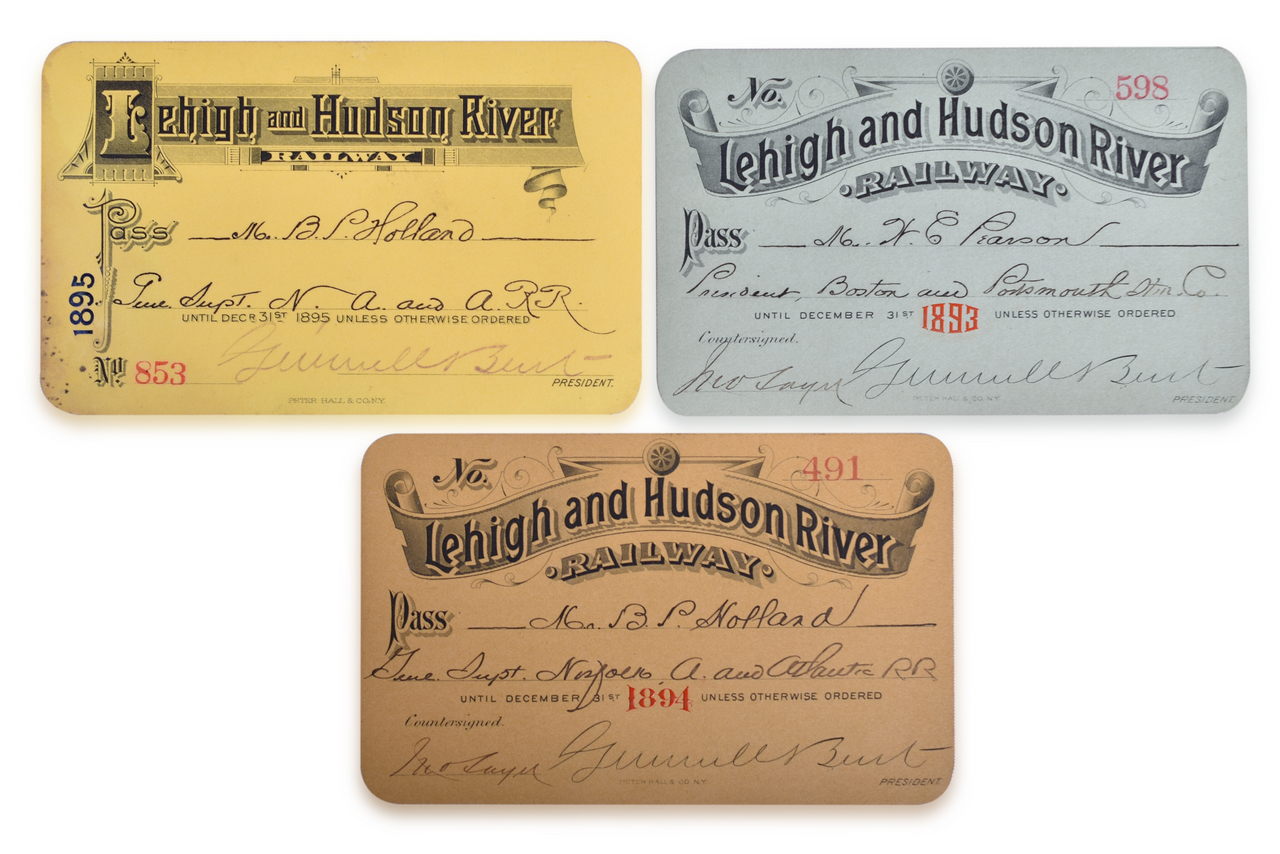 Lehigh and Hudson River
RAILWAY
Pass Mr. B. P. Holland
Genl. Supt. N. A. and A. RR.
1895
UNTIL DECR 31ST 1895 UNLESS OTHERWISE ORDERED
No 853
Grinnell Burt
PRESIDENT.
PETER HALL & CO. N.Y.
No. 598
Lehigh and Hudson River
RAILWAY
Pass Mr. E Pearson
President, Boston and Portsmouth Co.
UNTIL DECEMBER 31ST 1893 UNLESS OTHERWISE ORDERED
Countersigned.
Jno Sayer Grinnell Burt
PETER HALL & CO. N.Y.
PRESIDENT.
No. 491
Lehigh and Hudson River
RAILWAY
Pass Mr. B. P. Holland
Genl. Supt. Norfolk, A. and Atlantic RR
UNTIL DECEMBER 31ST 1894 UNLESS OTHERWISE ORDERED
Countersigned.
Jno Sayer Grinnell Burt
PETER HALL & CO. N.Y.
PRESIDENT.